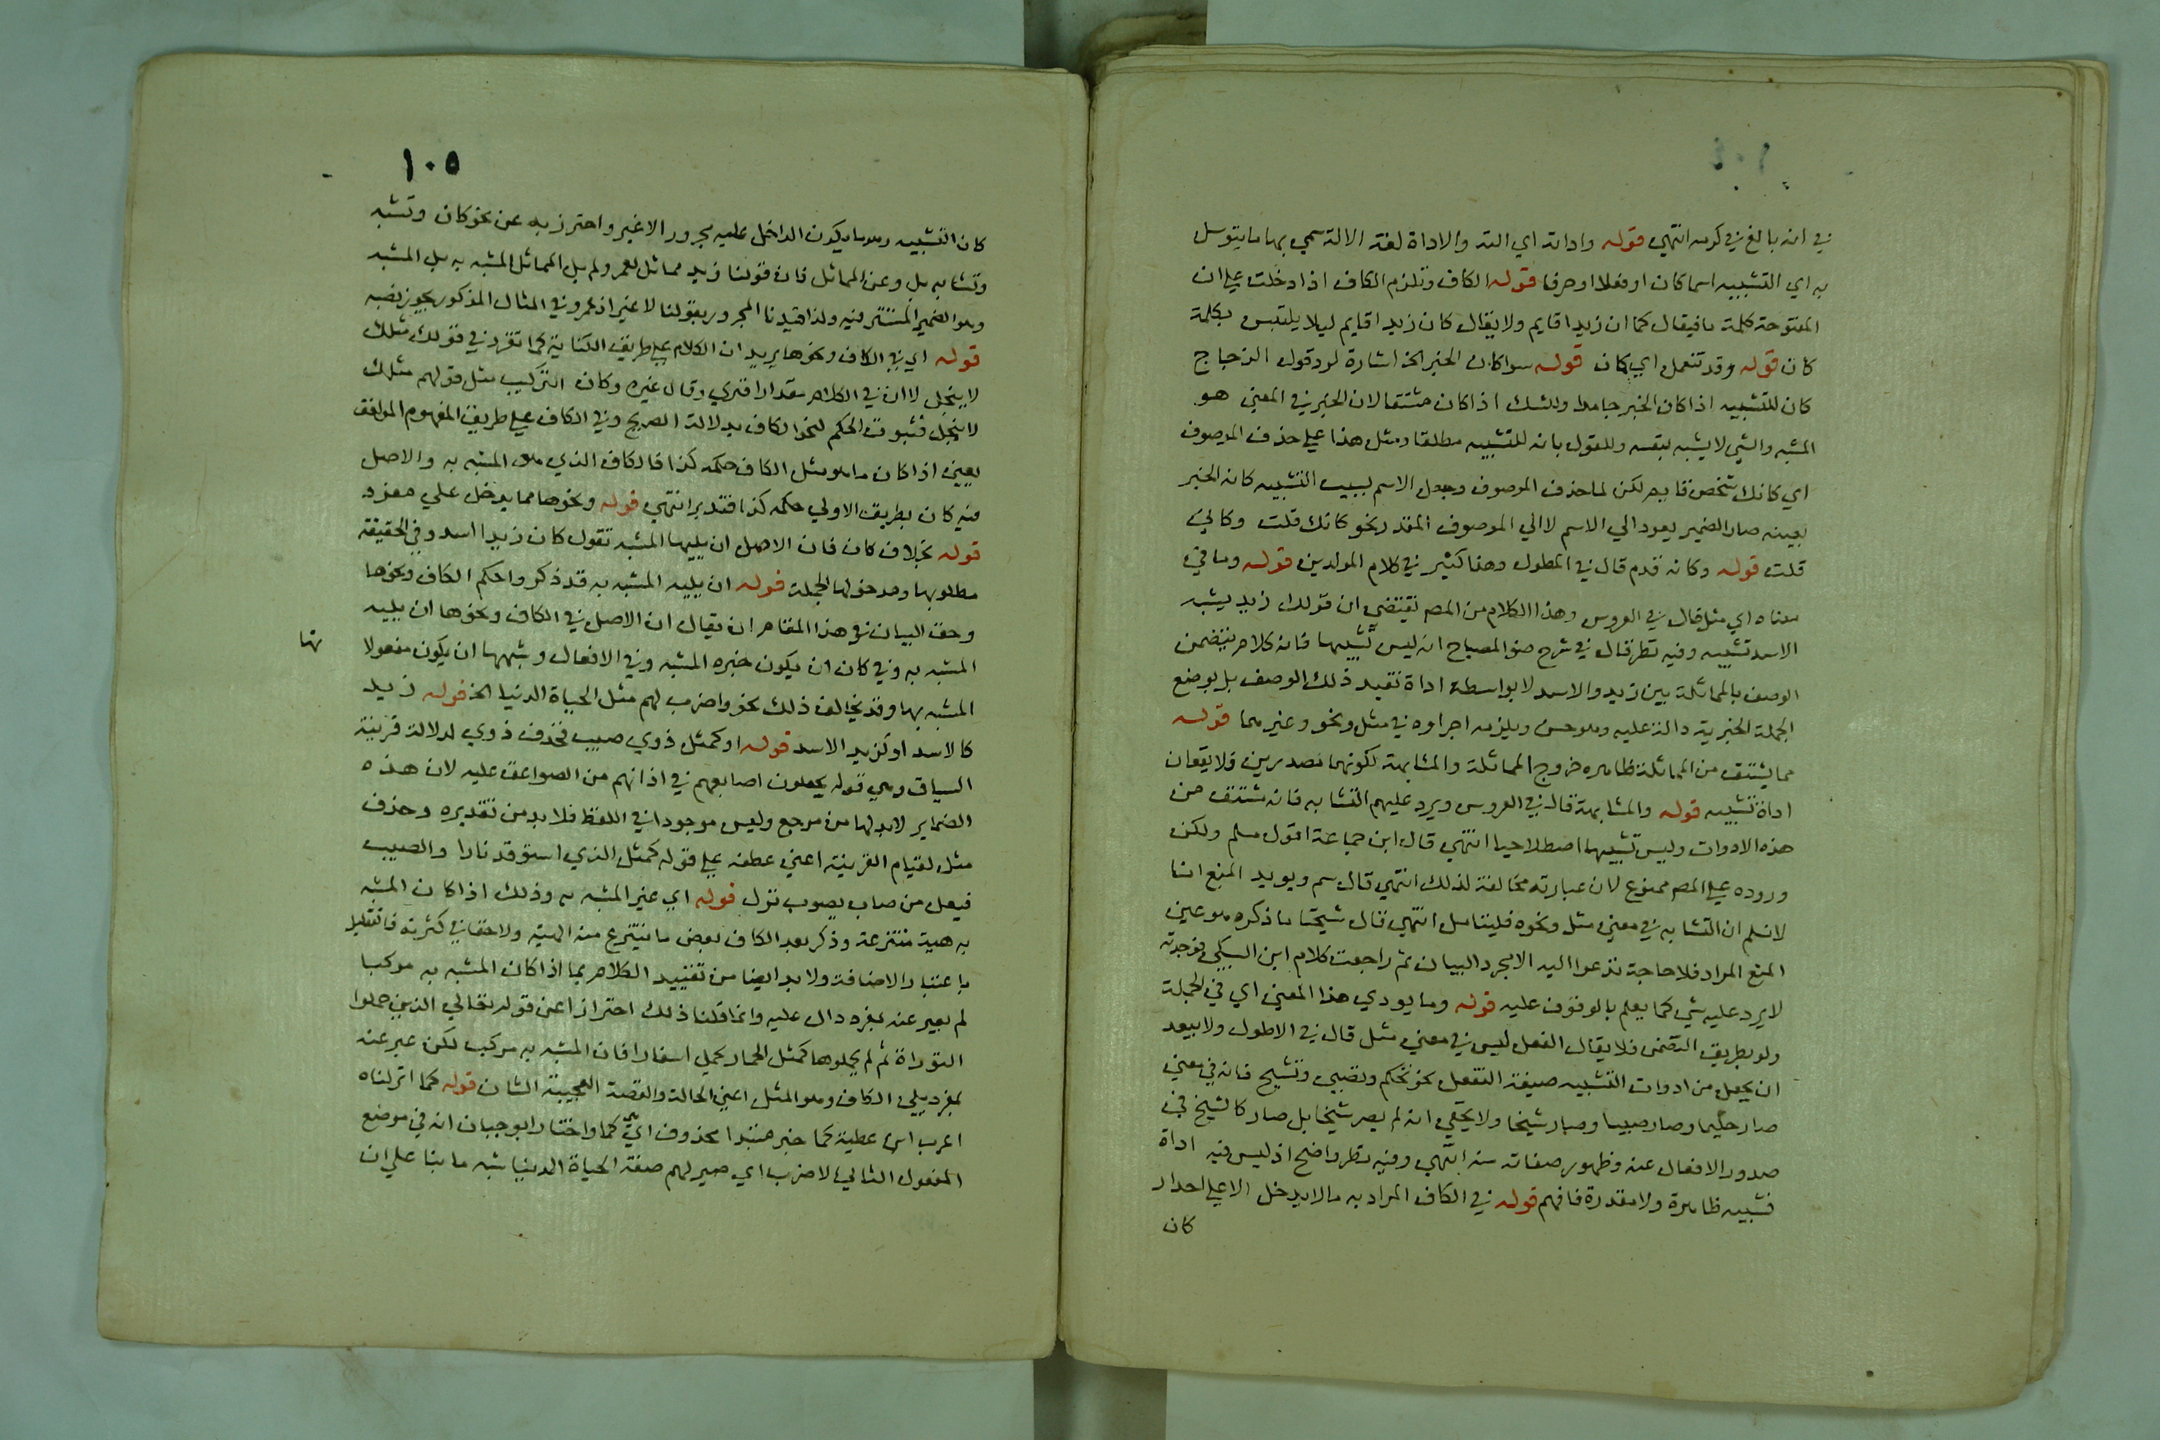 في انه بالغ في كرمه انتهي قوله واداته اي الته والاداة لغة الالة سمي بها ما يتوسل
به اي التشبيه اسما كان او فعلا او حرفا قوله الكاف وتلزم الكاف اذا دخلت علي ان
المفتوحة كلمة ما فيقال كما ان زيدا قايم ولا يقال كان زيدا قايم ليلا يلتبس بكلمة
كان قوله وقد تنعمل اي كان قوله سوا كان الخبر الخ اشارة لرد قول الزجاج
كان للتشبيه اذا كان الخبر جامدا وللشك اذا كان مشتقا لان الخبر في المعني هو
المشبه والشي لا يشبه بنفسه وللقول بانه للتشبيه مطلقا ومثل هذا علي حذف الموصوف
اي كانك شخص قايم لكن لما حذف الموصوف وجعل الاسم بسبب التشبيه كانه الخبر
بعينه صار الضمير يعود الي الاسم لا الي الموصوف المقدر نحو كانك قلت وكاني
قلت قوله وكانه قدم قال في المطول وهذا كثير في كلام المولدين قوله وما في
معناه اي مثل قال في العروس وهذا الكلام من المص تقتضي ان قولك زيد يشبه
الاسد تشبيه وفيه نظر قال في شرح ضو المصباح انه ليس تشبيها فانه كلام يتضمن
الوصف بالمماثلة بين زيد والاسد لا بواسطة اداة تفيد ذلك الوصف بل بوضع
الجملة الخبرية دالة عليه وهو حسن ويلزمه اجراوه في مثل ونحو وغيرهما قوله
مما يشتق من المماثلة ظاهره خروج المماثلة والمشابهة لكونهما مصدرين فلا يقعان
اداة تشبيه قوله والمشابهة قال في العروس ويرد عليهم التشابه فانه مشتق من
هذه الادوات وليس تشبيها اصطلاحيا انتهي قال ابن جماعة اقول مسلم ولكن
وروده علي المص ممنوع لان عبارته مخالفة لذلك انتهي قال سم ويويد المنع انا
لا نسلم ان التشابه في معني مثل ونحوه فليتامل انتهي قال شيخنا ما ذكره هو عين
المنع المراد فلا حاجة تدعوا اليه الا مجرد البيان ثم راجعت كلام ابن السبكي فوجدته
لا يرد عليه شي كما يعلم بالوقوف عليه قوله وما يودي هذا المعني اي في الجملة
ولو بطريق التضمن فلا يقال الفعل ليس في معني مثل قال في الاطول ولا يبعد
ان يجعل من ادوات التشبيه صيغة التفعل نحو تحكم وتصبي وتشيخ فانه في معني
صار حليما وصار صبيا وصار شيخا ولا يخفي انه لم يصر شيخا بل صار كالشيخ في
صدور الافعال عنه وظهور صفاته منه انتهي وفيه نظر واضح اذ ليس فيه اداة
تشبيه ظاهرة ولا مقدرة فافهم قوله في الكاف المراد به ما لا يدخل الا علي احدار
كان
١٠٥
كان التشبيه وهو ما يكون الداخل عليه مجرور الا غير واحترز به عن نحو كان وتشبه
وتشابه بل وعن المماثل فان قولنا زيد مماثل لعمرو لم يل المماثل المشبه به بل المشبه
وهو الضمير المستتر فيه ولذا قيدنا المجرور بقولنا لا غير اذ عمرو في المثال المذكور يجوز نصبه
قوله اي في الكاف ونحوها يريد ان الكلام علي طريق الكناية كما تقرر في قولك مثلك
لا يبخل لا ان في الكلام مقدار اقتري وقال غيره وكان التركيب مثل قولهم مثلك
لا يبخل فثبوت الحكم لنحو الكاف بدلالة الصريح وفي الكاف علي طريق المفهوم الموافق
يعني اذا كان ما هو مثل الكاف حكمه كذا فالكاف الذي هو المشبه به والاصل
فيه كان بطريق الاولي حكمه كذا فتدبر انتهي قوله ونحوها مما يدخل علي مفرد
قوله بخلاف كان فان الاصل ان يليها المشبه تقول كان زيدا اسد وفي الحقيقة
مطلوبها ومدخولها الجملة قوله ان يليه المشبه به قد ذكروا حكم الكاف ونحوها
وحق البيان في هذا المقام ان يقال ان الاصل في الكاف ونحوها ان يليه
المشبه به وفي كان ان يكون خبره المشبه وفي الافعال وشبهها ان يكون مفعولا
المشبه بها وقد يخالف ذلك نحو واضرب لهم مثل الحياة الدنيا الخ قوله زيد
كالاسد او كزيد الاسد قوله او كمثل ذوي صيب فحذف ذوي لدلالة قرينة
السياق وهي قوله يجعلون اصابعهم في اذانهم من الصواعق عليه لان هذه
الضماير لابد لها من مرجع وليس موجودا في اللفظ فلا بد من تقديره وحذف
مثل لقيام القرينة اعني عطفه علي قوله كمثل الذي استوقد نارا والصيب
فيعل من صاب يصوب نزل قوله اي غير المشبه به وذلك اذا كان المشبه
به هية منتزعة وذكر بعد الكاف بعض ما ينتزع منه الهيئة ولا خفا في كثرته فالتقليل
باعتبار الاضافة ولا بد ايضا من تقييد الكلام بما اذا كان المشبه به مركبا
لم يعبر عنه بمفرد دال عليه وانما قلنا ذلك احترازا عن قوله تعالي الذين حملوا
التوراة ثم لم يحملوها كمثل الحمار يحمل اسفارا فان المشبه به مركب لكن عبر عنه
بمفرد يلي الكاف وهو المثل اعني الحالة والقصة العجيبة الشان قوله كما انزلناه
اعرب ابن عطية كما خبر مبتدا محذوف اي هي كما واختار ابو حيان انه في موضع
المفعول الثاني لاضرب اي صير لهم صفة الحياة الدنيا شبه ما بنا علي ان